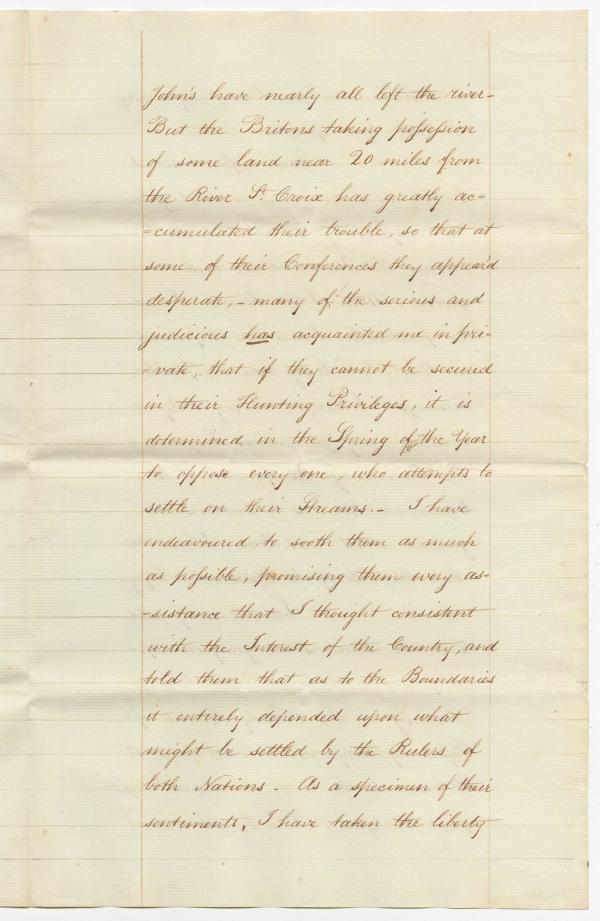 John's have nearly all left the river-
But the Britons taking possession
of some land near 20 miles from
the River St. Croix has greatly ac-
-cumulated their trouble, so that at
some of their Conferences they appear'd
desperate,- many of the serious and
judicious has acquainted me in pri-
-vate, that if they cannot be secured
in their Hunting Privileges, it is
determined in the Spring of the Year
to oppose every one, who attempts to
settle on their Streams.- I have
endeavoured to sooth them as much
as possible, promising them every as-
-sistance that I thought consistent
with the Interest of the Country, and
told them that as to the Boundaries
it entirely depended upon what
might be settled by the Rulers of
both Nations - As a specimen of their
sentiments, I have taken the liberty